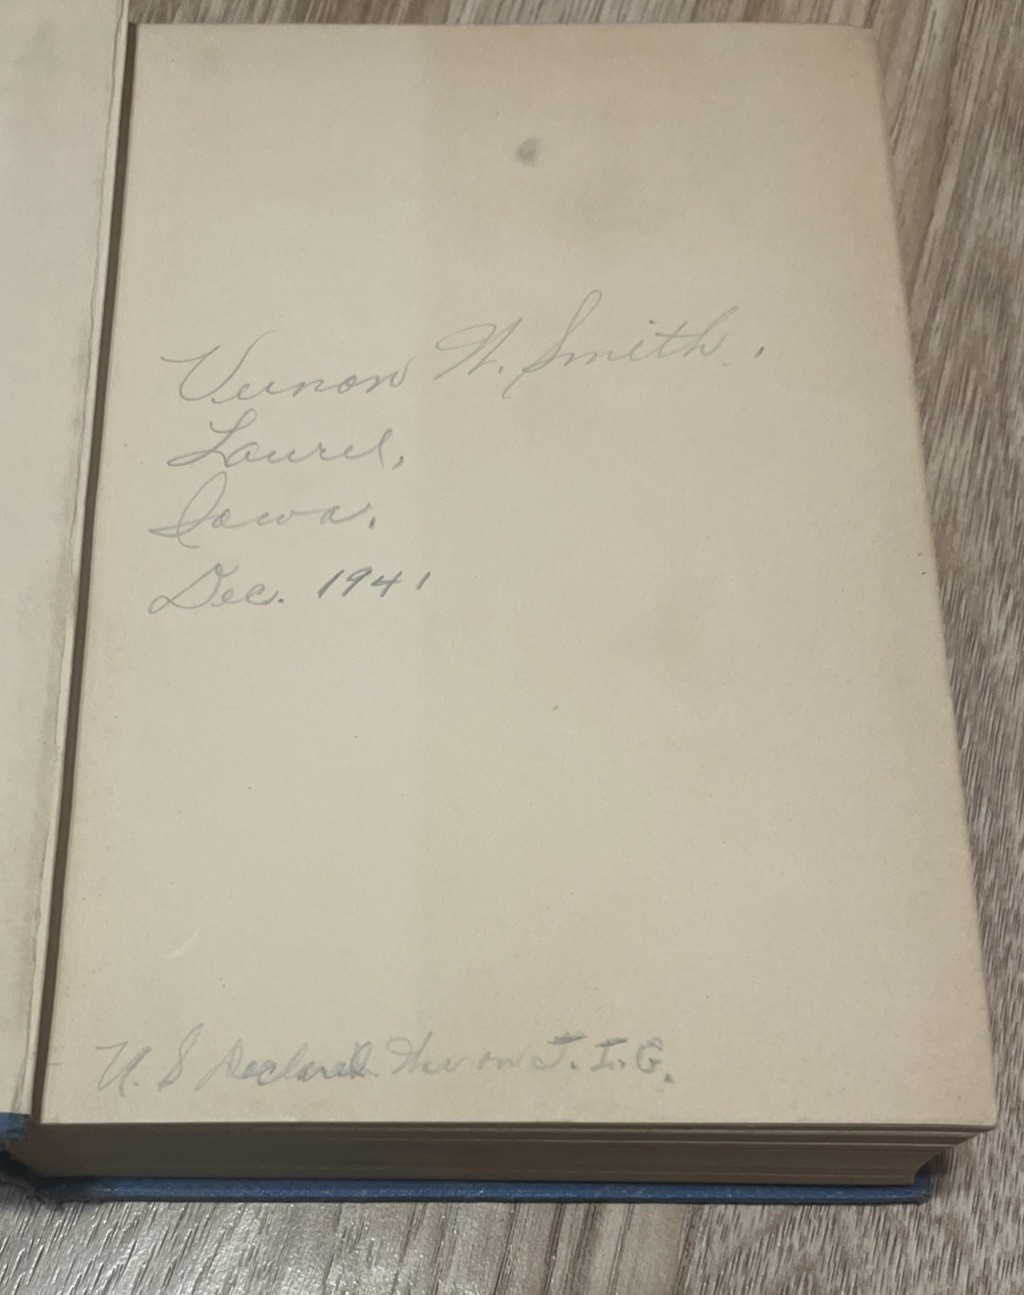 Vernon W. Smith.
Laurel,
Iowa.
Dec. 1941
U. S Declared War on J. I. G.